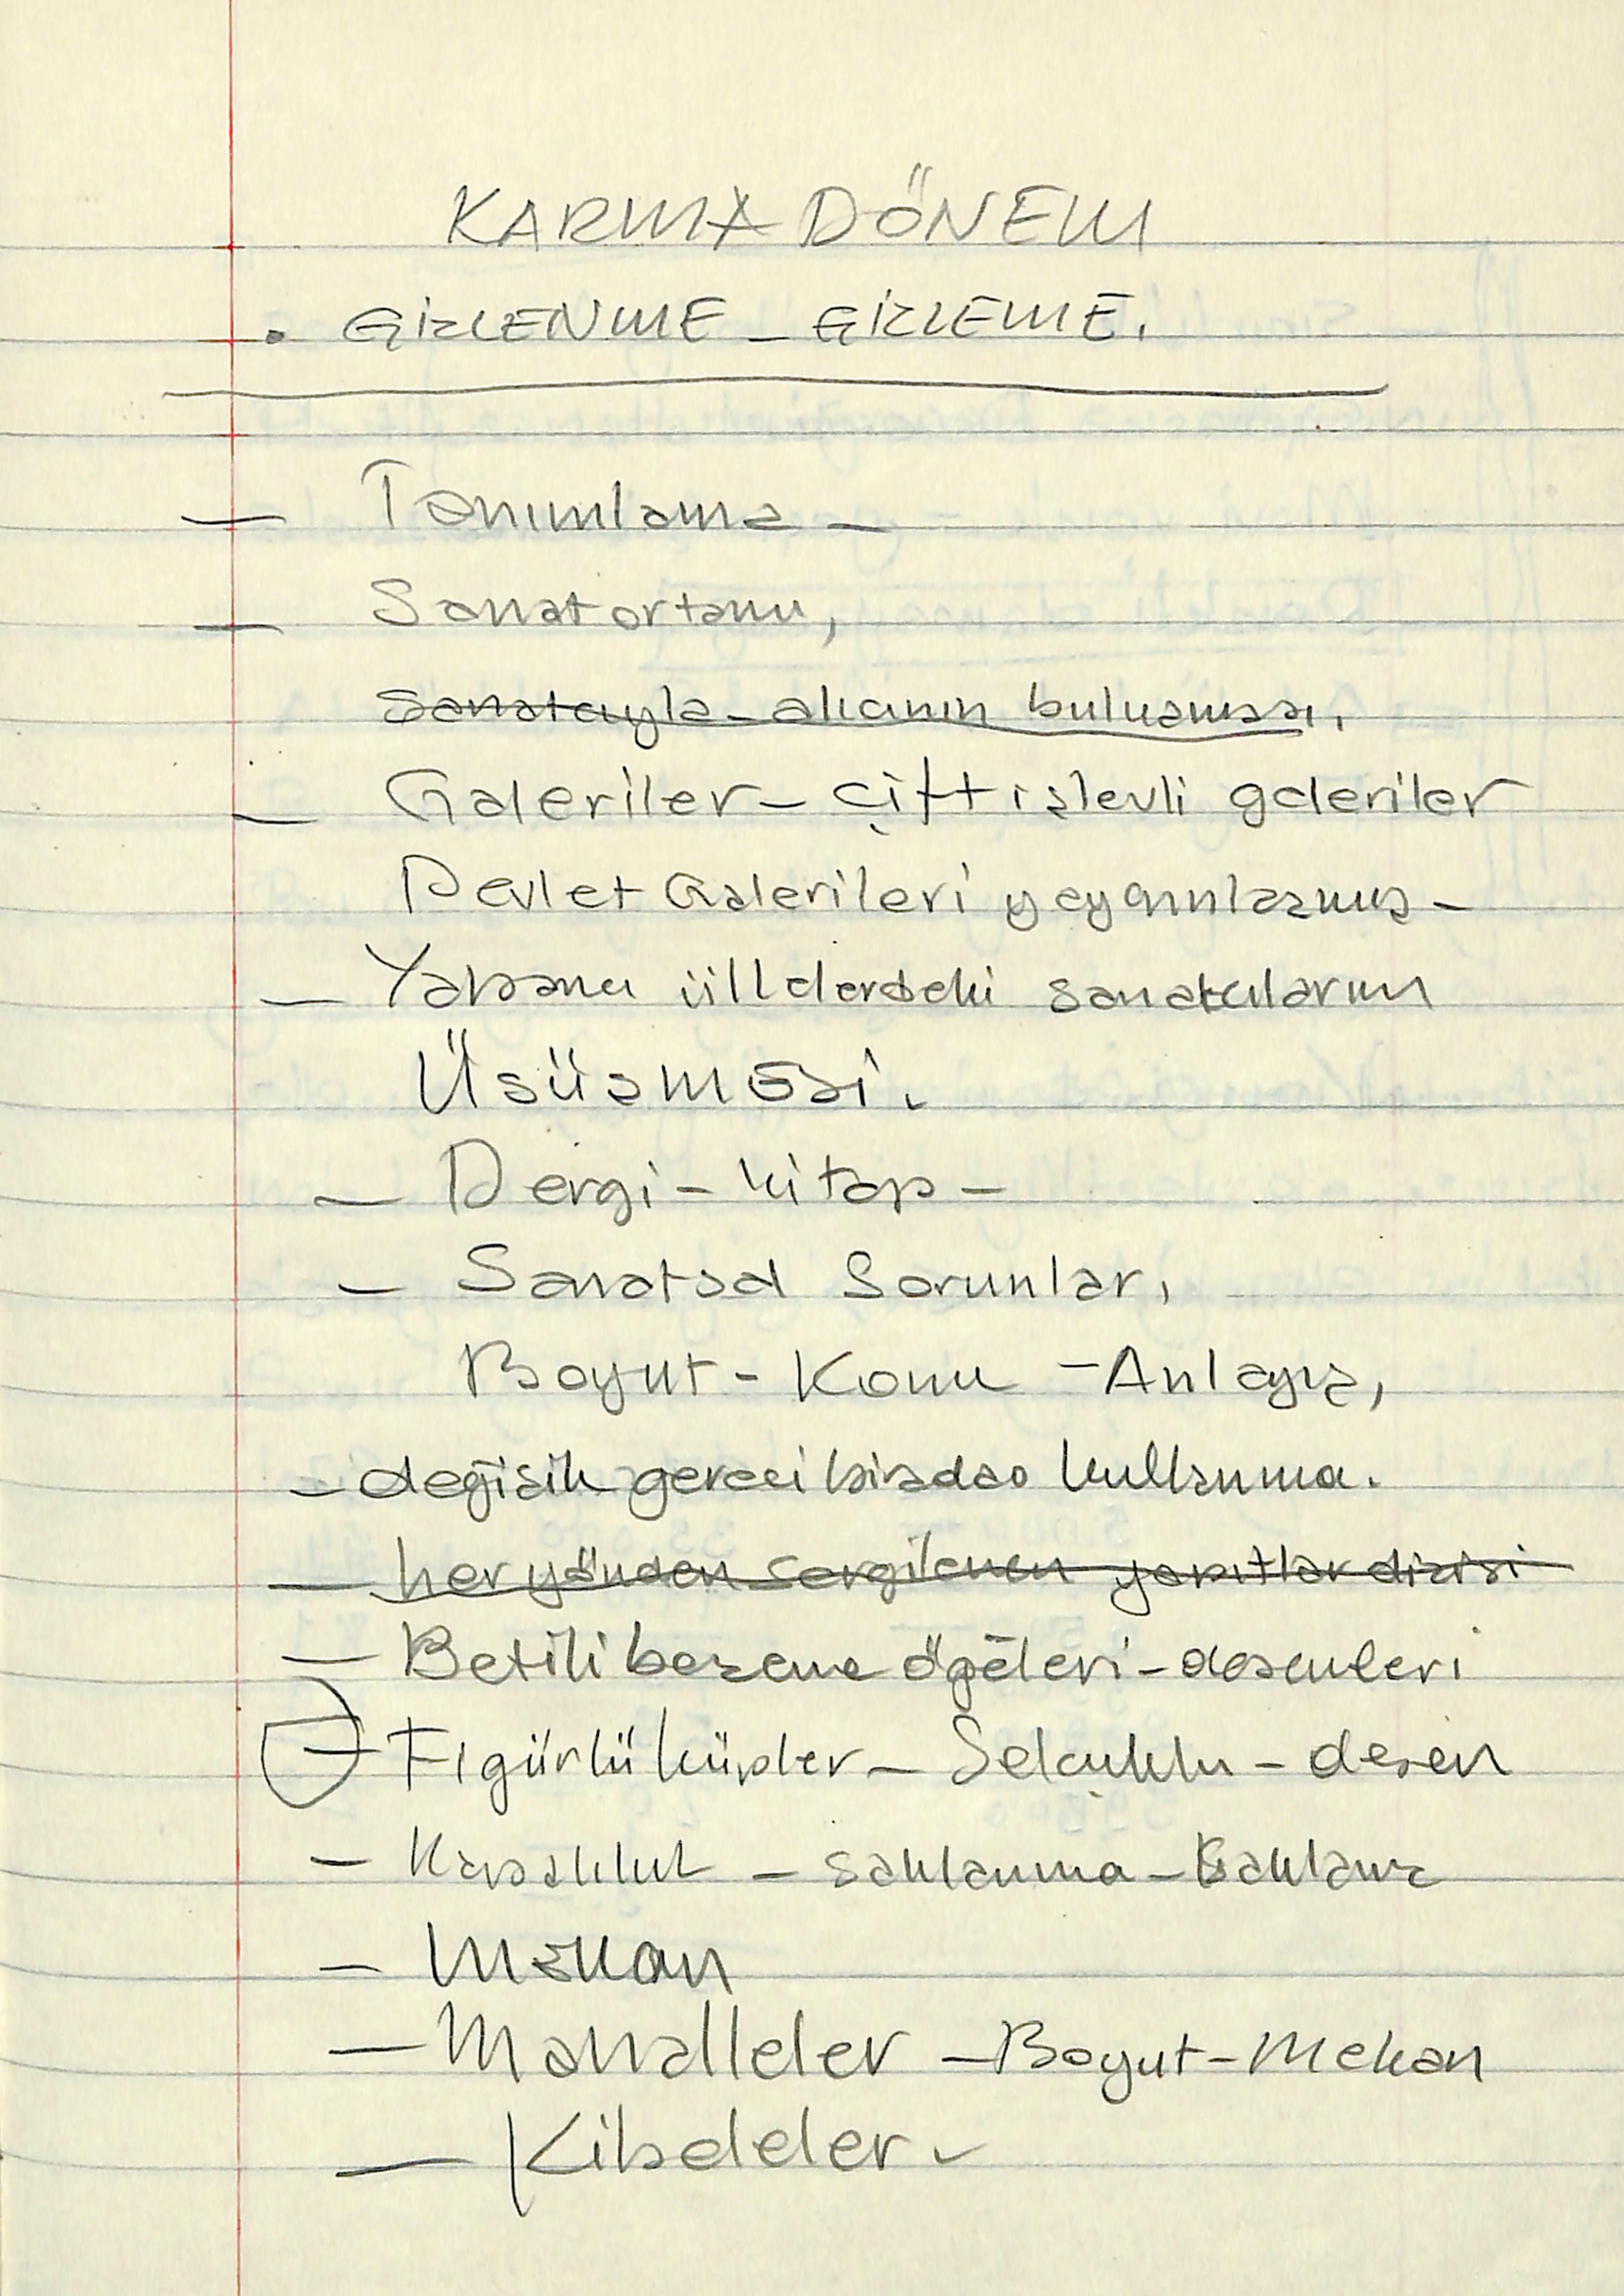 KARMA DÖNEM
• GİZLENME – GİZLEME.
— Tanımlama —
— Sanat ortamı,
Sanatcıyla – alıcının buluşması,
— Galeriler – çift işlevli galeriler
Devlet Galerileri yaygınlaşmış –
— Yabancı ülkelerdeki sanatcıların
Üşüşmesi.
— Dergi – kitap –
— Sanatsal Sorunlar,
Boyut – Konu – Anlayış,
– değişik gereci birada kullanma.
— her yönden sergilenen yapıtlar dizisi
— Betili bezeme öğeleri – desenleri
— Figürlü küpler – Selçuklu – desen
— Kapaklılık – saklanma – Saklama
— Mekan
— Mahalleler – Boyut – Mekan
— Kibeleler